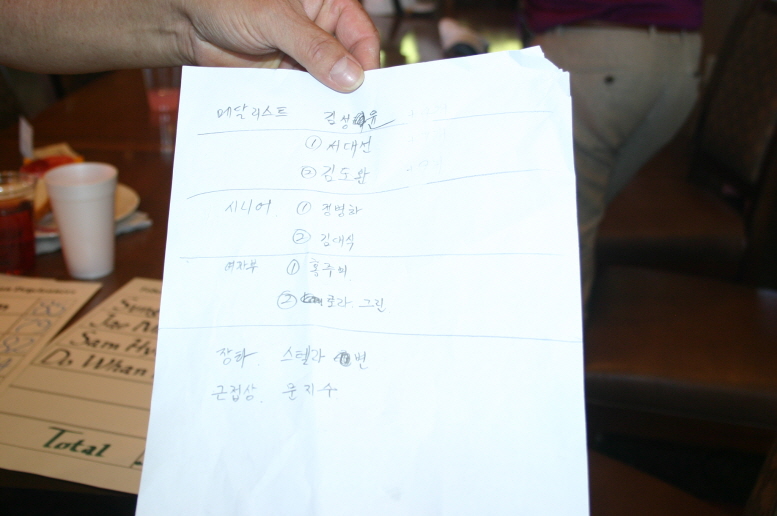 메달리스트 김성윤
① 서대선
② 김도완
시니어 ① 정병화
② 김대식
여자부 ① 홍주희
② 로라 그린
장타 스텔라 변
근접상 윤지수
Jae
Sam
Do Whan
Total